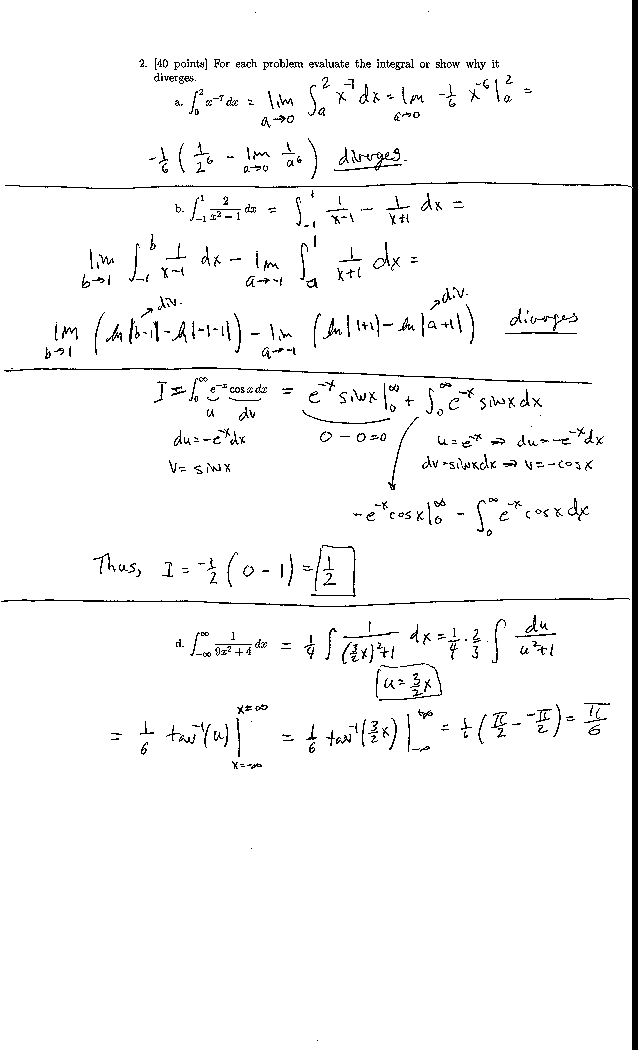 2. [40 points] For each problem evaluate the integral or show why it
diverges.
a. ∫_0^2 x^{-7} dx = lim_{a→0} ∫_a^2 x^{-7} dx = lim_{a→0} -1/6 x^{-6} |_a^2 =
-1/6 ( 1/2^6 - lim_{a→0} 1/a^6 ) diverges.
b. ∫_{-1}^1 2/(x^2 - 1) dx = ∫_{-1}^1 1/(x-1) - 1/(x+1) dx =
lim_{b→1} ∫_{-1}^b 1/(x-1) dx - lim_{a→-1} ∫_a^1 1/(x+1) dx =
div. div.
lim_{b→1} ( ln|b-1| - ln|-1-1| ) - lim_{a→-1} ( ln|1+1| - ln|a+1| ) diverges
I = ∫_0^∞ e^{-x} cos x dx = e^{-x} sinx |_0^∞ + ∫_0^∞ e^{-x} sinx dx
u dv
du = -e^{-x} dx 0 - 0 = 0 u = e^{-x} ⇒ du = -e^{-x} dx
v = sinx dv = sinx dx ⇒ v = -cosx
-e^{-x} cosx |_0^∞ - ∫_0^∞ e^{-x} cosx dx
Thus, I = -1/2 ( 0 - 1 ) = 1/2
d. ∫_{-∞}^∞ 1/(9x^2 + 4) dx = 1/4 ∫ 1/((3/2 x)^2 + 1) dx = 1/4 · 2/3 · ∫ du/(u^2+1)
u = 3/2 x
= 1/6 tan^{-1}(u) |_{x=-∞}^{x=∞} = 1/6 tan^{-1}(3/2 x) |_{-∞}^∞ = 1/6 ( π/2 - -π/2 ) = π/6